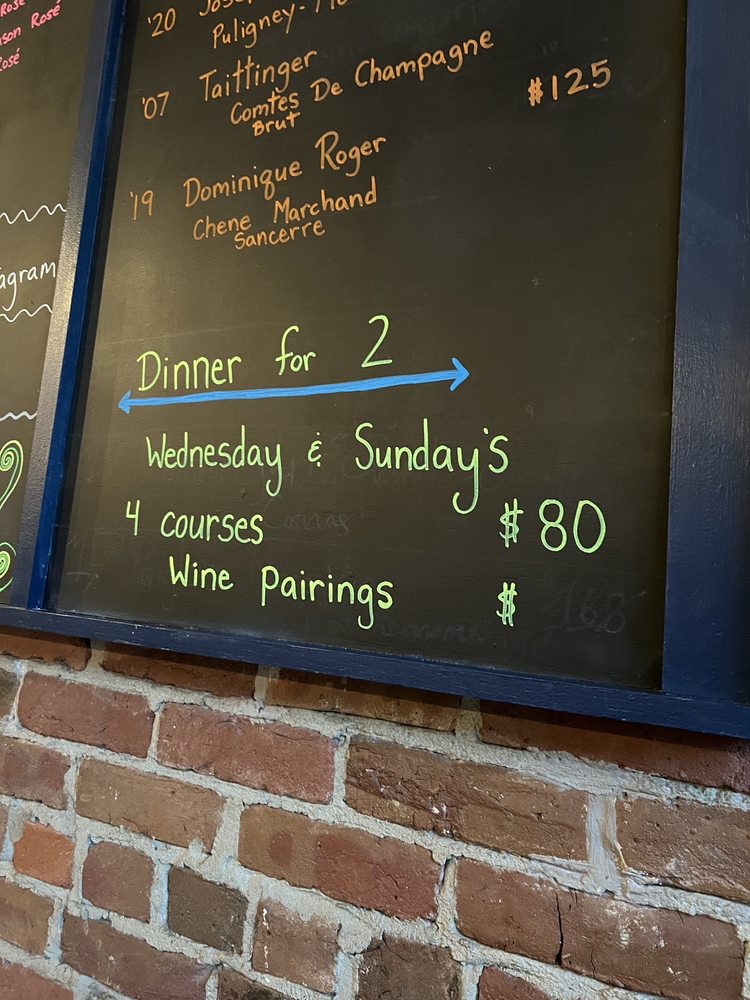 Rosé
son Rosé
Rosé
agram
'20
Puligney-
'07 Taittinger
Comtes De Champagne $125
Brut
'19 Dominique Roger
Chene Marchand
Sancerre
Dinner for 2
Wednesday & Sunday's
4 courses $80
Wine Pairings $